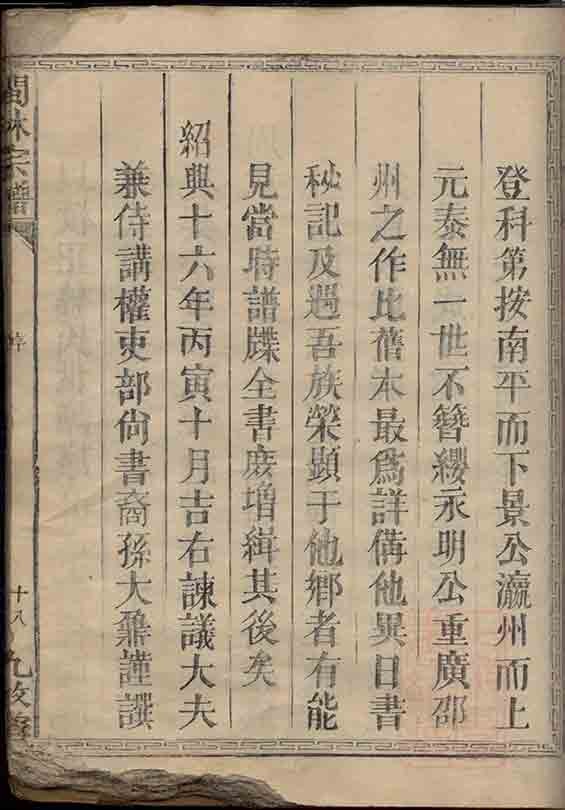 登科第按南平而下景公瀛州而上
元泰無一世不簪纓永明公重廣邵
州之作比舊本最爲詳備他異日書
秘記及遇吾族榮顯于他鄉者有能
見當時譜牒全書庶增緝其後矣
紹興十六年丙寅十月吉右諫議大夫
兼侍講權吏部尚書裔孫大鼐謹譔
林宗譜
十八